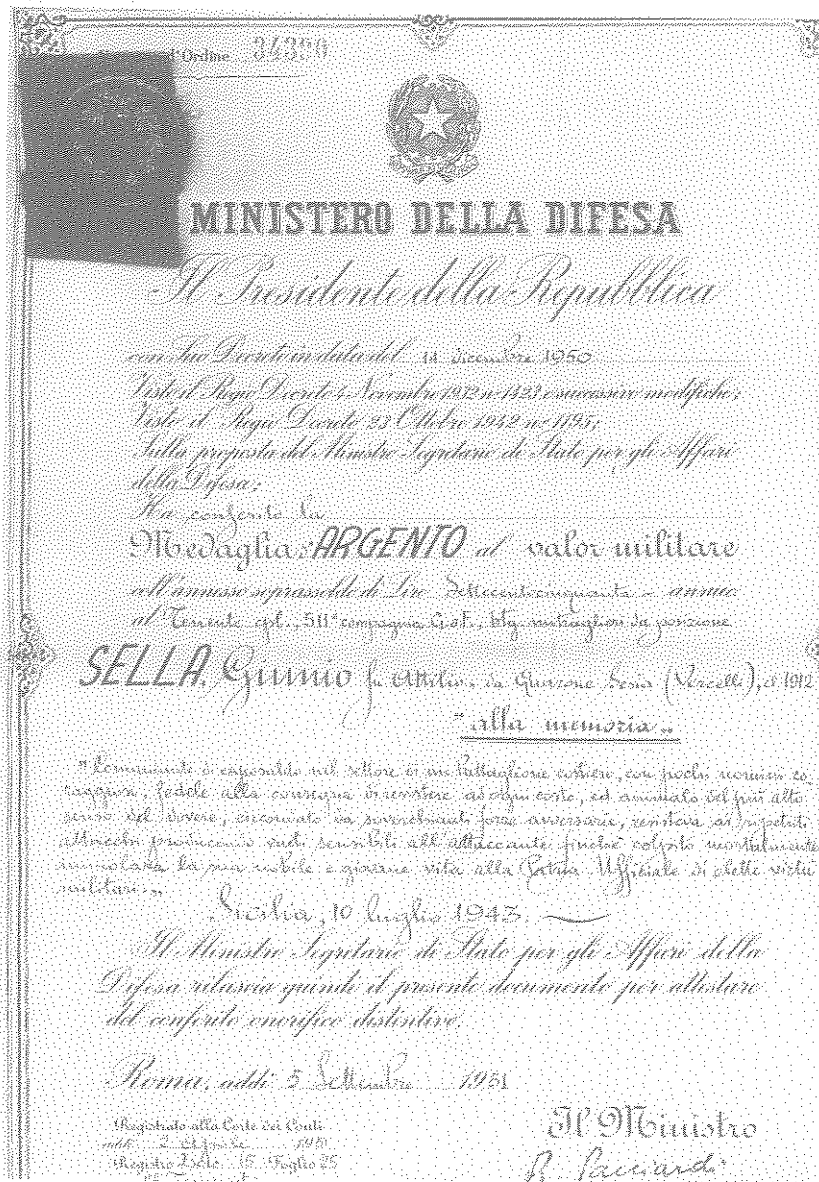 d'Ordine 34320
MINISTERO DELLA DIFESA
Il Presidente della Repubblica
con Suo Decreto in data del 14 dicembre 1950
Visto il Regio Decreto 4 Novembre 1932 n. 1423 e successive modifiche;
Visto il Regio Decreto 23 Ottobre 1942 n. 1195;
Sulla proposta del Ministro Segretario di Stato per gli Affari
della Difesa;
Ha conferito la
Medaglia d'ARGENTO al valor militare
coll'annesso soprassoldo di Lire Settecentocinquanta - annue
al Tenente cpl., 511ª compagnia btg. mitraglieri da posizione
SELLA Giunio fu Attilio, da Quarone Sesia (Vercelli), cl 1912
"alla memoria"
"Comandante di caposaldo nel settore di un battaglione costiero, con pochi uomini co-
raggiosi, fedele alla consegna di resistere ad ogni costo, ed animato del più alto
senso del dovere, circondato da soverchianti forze avversarie, resisteva ai ripetuti
attacchi producendo vuoti sensibili all'attaccante finchè colpito mortalmente
immolava la sua nobile e giovane vita alla Patria. Ufficiale di elette virtù
militari."
Sicilia, 10 luglio 1943.
Il Ministro Segretario di Stato per gli Affari della
Difesa rilascia quindi il presente documento per attestare
del conferito onorifico distintivo.
Roma, addì 5 Settembre 1951
Registrato alla Corte dei Conti
addì 2 aprile 1951
Registro 15 Foglio 25
Il Ministro
R. Pacciardi